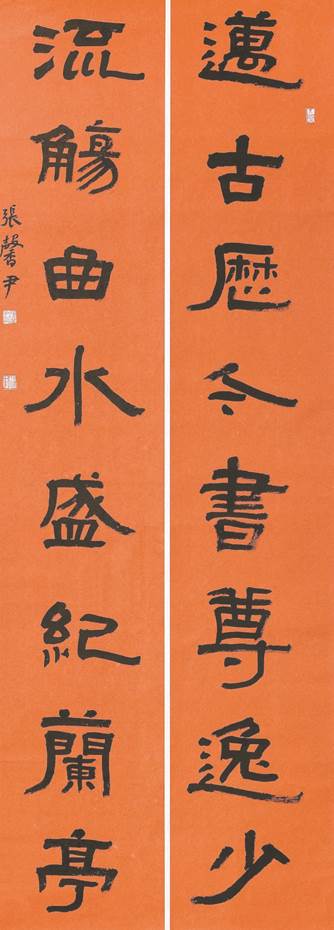 邁古歷今書尊逸少
流觴曲水盛紀蘭亭
張馨尹